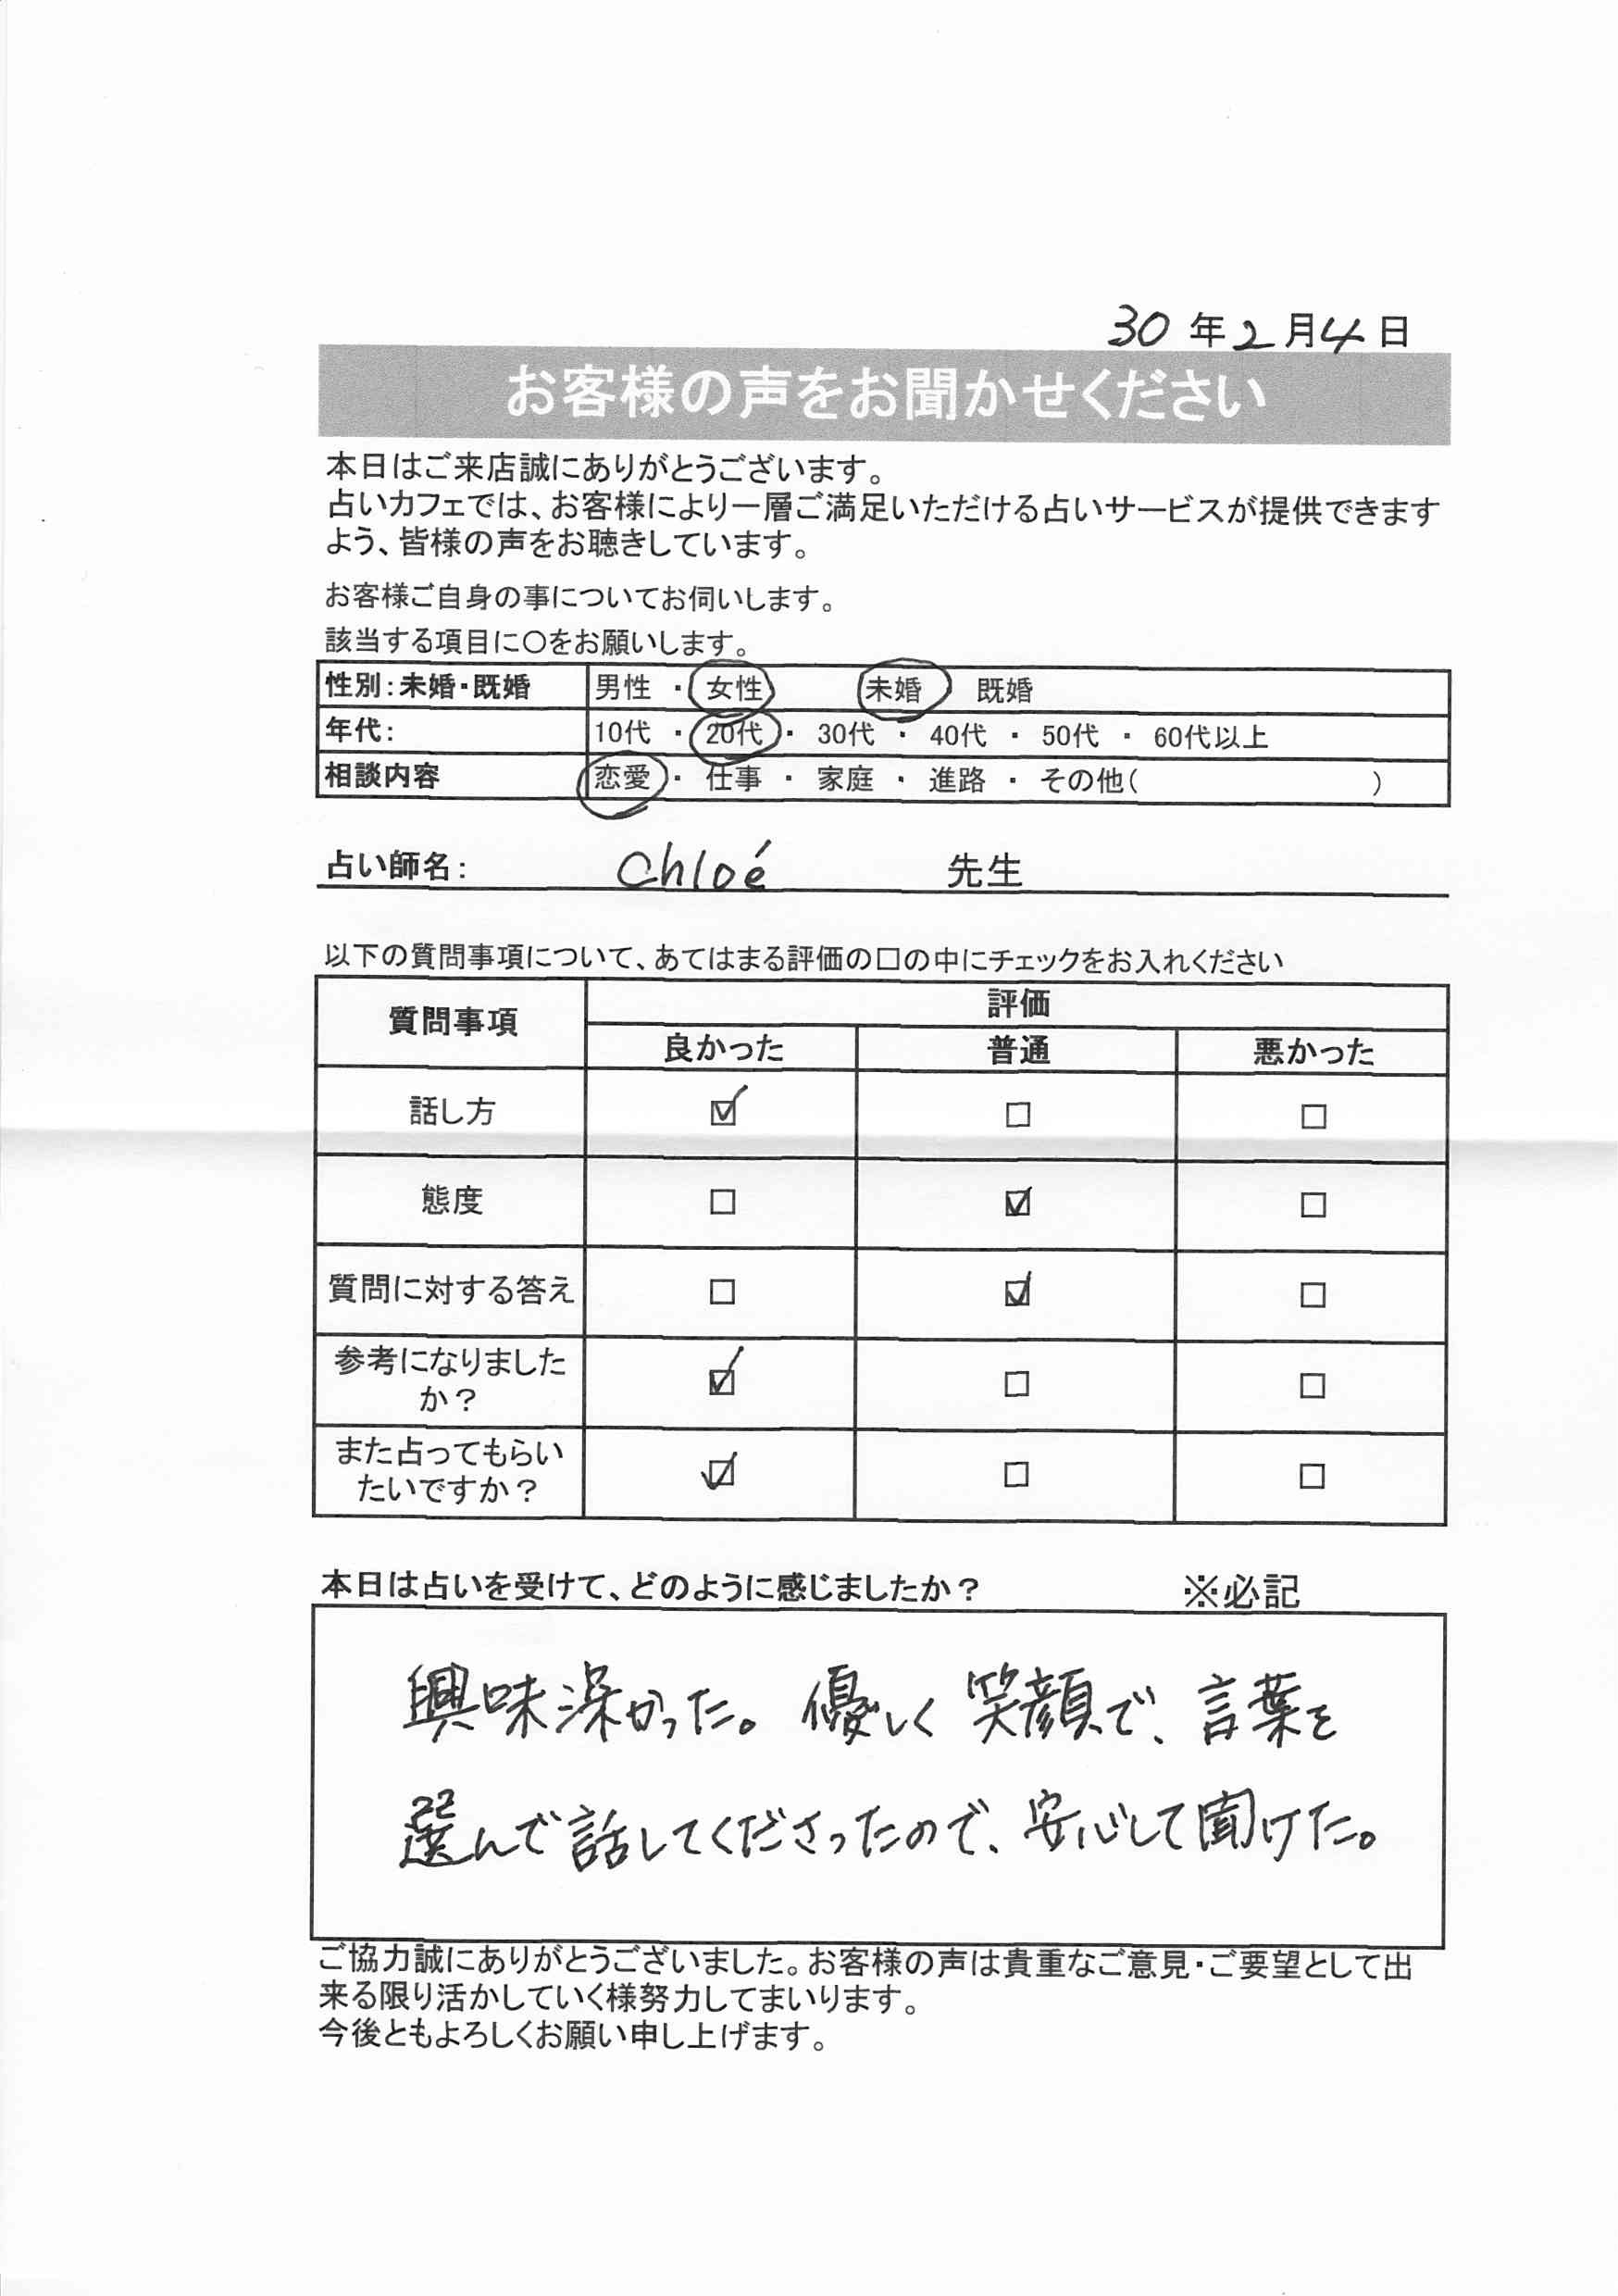 30年2月4日
お客様の声をお聞かせください
本日はご来店誠にありがとうございます。
占いカフェでは、お客様により一層ご満足いただける占いサービスが提供できます
よう、皆様の声をお聴きしています。
お客様ご自身の事についてお伺いします。
該当する項目に〇をお願いします。
性別:未婚・既婚 男性 ・ 女性 未婚 既婚
年代: 10代 ・ 20代 ・ 30代 ・ 40代 ・ 50代 ・ 60代以上
相談内容 恋愛 ・ 仕事 ・ 家庭 ・ 進路 ・ その他( )
占い師名: Chloé 先生
以下の質問事項について、あてはまる評価の口の中にチェックをお入れください
質問事項 評価
良かった 普通 悪かった
話し方 ☑ □ □
態度 □ ☑ □
質問に対する答え □ ☑ □
参考になりました
か? ☑ □ □
また占ってもらい
たいですか? ☑ □ □
本日は占いを受けて、どのように感じましたか? ※必記
興味深かった。優しく笑顔で、言葉を
選んで話してくださったので、安心して聞けた。
ご協力誠にありがとうございました。お客様の声は貴重なご意見・ご要望として出
来る限り活かしていく様努力してまいります。
今後ともよろしくお願い申し上げます。